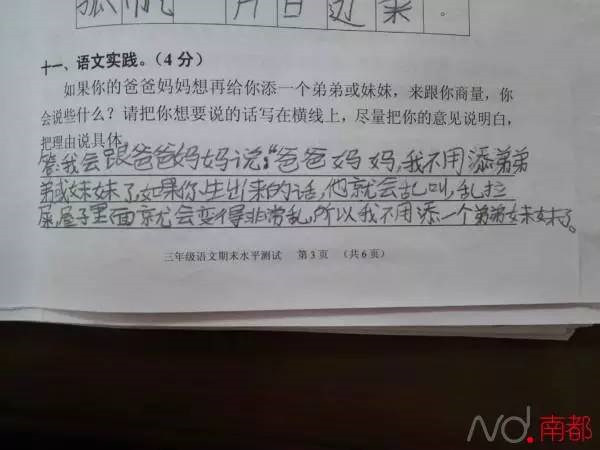 片 日 边 来 。
十一、语文实践。(4分)
如果你的爸爸妈妈想再给你添一个弟弟或妹妹，来跟你商量，你
会说些什么？请把你想要说的话写在横线上，尽量把你的意见说明白，
把理由说具体。
答:我会跟爸爸妈妈说:“爸爸妈妈,我不用添弟弟
弟或妹妹了,如果你生出来的话,他就会乱叫,乱拉
屎,屋子里面就会变得非常乱,所以我不用添一个弟弟妹妹了。
三年级语文期末水平测试 第3页 (共6页)
nd.南都